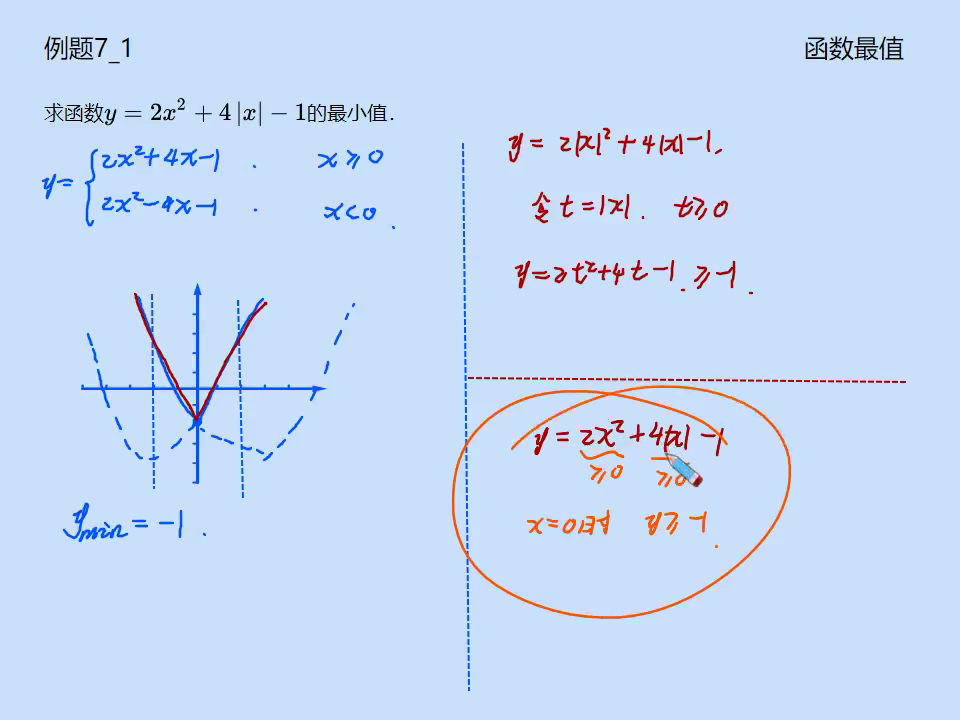 例题7_1
函数最值
求函数y = 2x² + 4|x| − 1的最小值.
y= { 2x²+4x-1 . x≥0
2x²-4x-1 . x<0 .
y_min = -1 .
y = 2|x|² + 4|x| -1 ,
令 t = |x| . t≥0
y=2t²+4t-1 . ≥-1 .
y = 2x² + 4|x| -1
≥0 ≥0
x=0时 y≥ -1 .